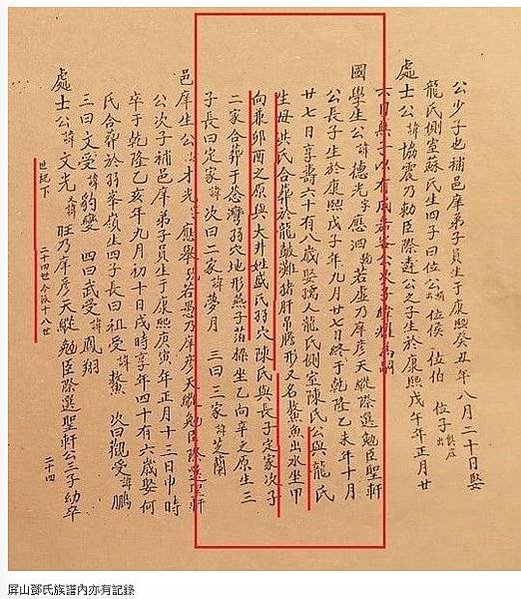 公少子也補邑庠弟子員生于康熙癸丑年八月二十日娶
龍氏側室蘇氏生四子曰位公 位侯 位伯 位子
處士公諱協震乃勅臣際遴公之子生於康熙戊午年正月廿
六日無子以有成
國學生公諱德光字應泗乾若虛乃庠彥天縱際選勉臣聖軒
公長子生於康熙戊子年九月廿七日終于乾隆乙未年十月
廿七日享壽六十有八歲娶孺人龍氏側室陳氏公與龍氏
生母洪氏合葬於龍鼓灘猪肝吊膽形又名鰲魚出水坐甲
向兼卯酉之原與大井姓盛氏弱穴陳氏與長子定家次子
二家合葬于荅灣弱穴地形燕子落樑坐乙向辛之原生三
子長曰定家諱 次曰二家諱夢月 三曰三家諱芝蘭
邑庠生公諱才光字應舉乾若愚乃庠彥天縱勉臣際選聖軒
公次子補邑庠弟子員生于康熙庚寅年正月十三日申時
卒于乾隆乙亥年九月初十日戌時享年四十有六歲娶何
氏合葬於弱峯嶺生四子長曰祖受諱鰲 次曰觀受諱鵬
三曰文受諱豹變 四曰武受諱鳳翔
處士公諱文光又諱旺乃庠彥天縱勉臣際選聖軒公三子幼卒
世紀下 二十四世 今
二十四
屏山鄧氏族譜內亦有記錄